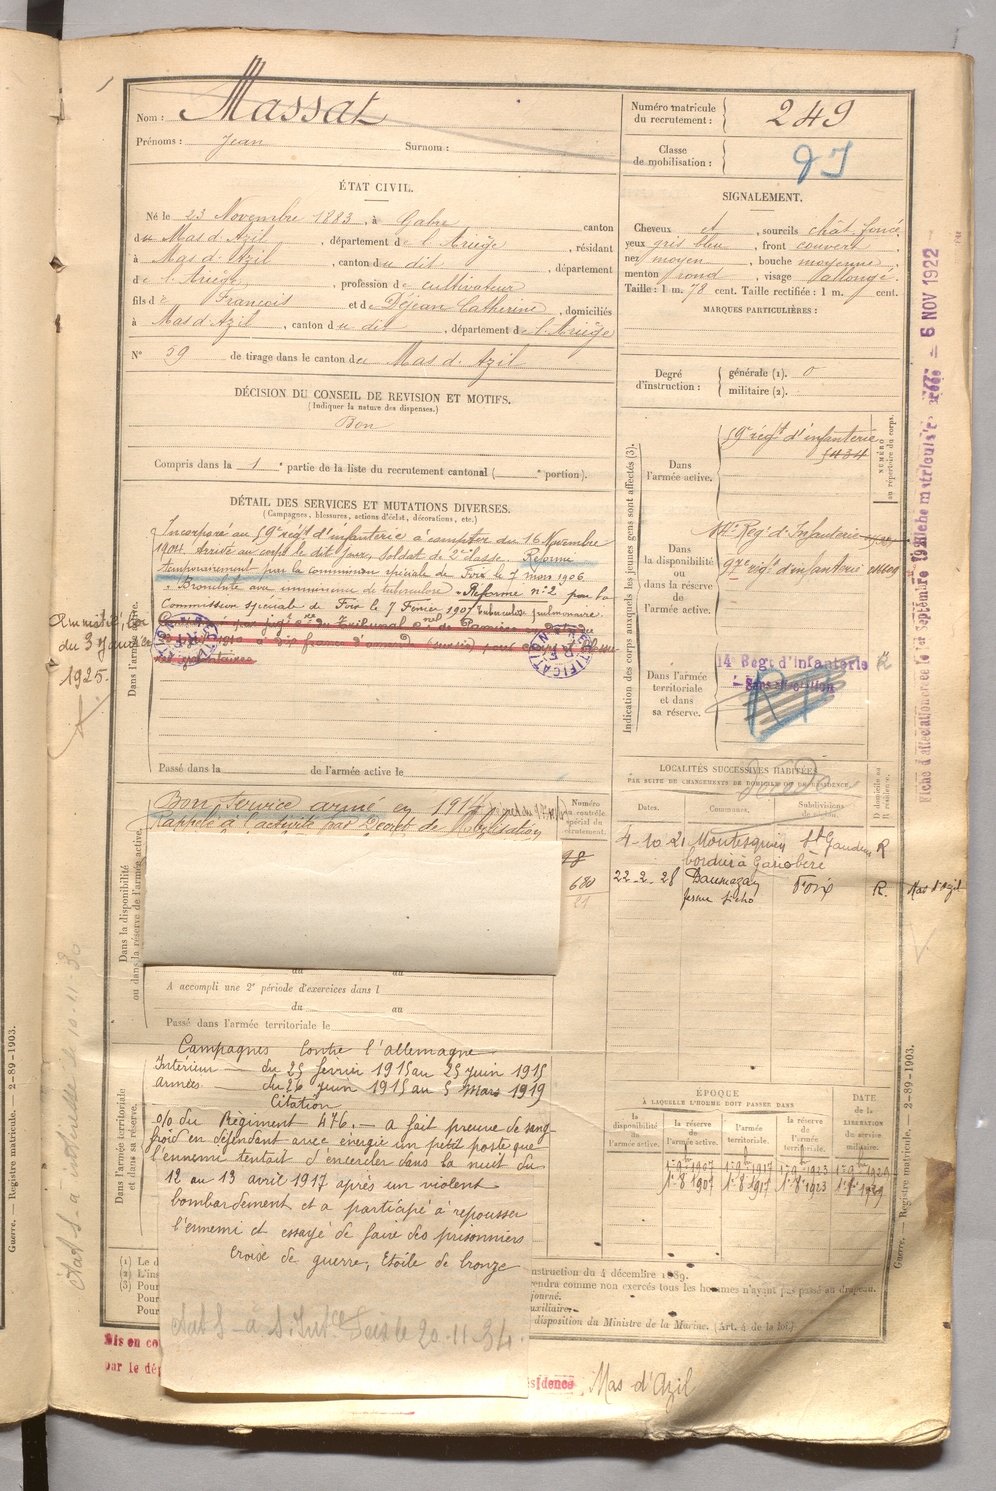 Nom : Massat
Prénoms : Jean Surnom :
Numéro matricule du recrutement : 249
Classe de mobilisation :
ÉTAT CIVIL.
Né le 23 Novembre 1883, à Gabre canton
du Mas d'Azil, département de l'Ariège, résidant
à Mas d'Azil, canton du dit, département
de l'Ariège, profession de cultivateur
fils de François et de Déjean Catherine, domiciliés
à Mas d'Azil, canton du dit, département de l'Ariège
N° 59 de tirage dans le canton du Mas d'Azil
SIGNALEMENT.
Cheveux et, sourcils chât. foncé,
yeux gris bleu, front couvert
nez moyen, bouche moyenne,
menton rond, visage allongé.
Taille : 1 m. 78 cent. Taille rectifiée : 1 m. cent.
MARQUES PARTICULIÈRES :
Degré d'instruction : générale (1). 0
militaire (2).
DÉCISION DU CONSEIL DE REVISION ET MOTIFS.
(Indiquer la nature des dispenses.)
Bon
Compris dans la 1e partie de la liste du recrutement cantonal ( e portion).
DÉTAIL DES SERVICES ET MUTATIONS DIVERSES.
(Campagnes, blessures, actions d'éclat, décorations, etc.)
Incorporé au 59e régt d'infanterie à compter du 16 Novembre
1904. Arrivé au corps le dit jour, soldat de 2e classe. Réformé
temporairement par la commission spéciale de Foix le 7 mars 1906
"Bronchite avec imminence de tuberculose" Réformé n° 2 par la
Commission spéciale de Foix le 7 Février 1907 Tuberculose pulmonaire.
Amnistié, Loi
du 3 Janvier
1925.
Passé dans la de l'armée active le
Dans l'armée active.
Indication des corps auxquels les jeunes gens sont affectés (3).
NUMÉRO au répertoire du corps.
Dans l'armée active.
59e régt d'infanterie
5434
Dans la disponibilité ou dans la réserve de l'armée active.
14e Reg. d'Infanterie
97e régt d'infanterie
Dans l'armée territoriale et dans sa réserve.
14e Régt d'infanterie
Sans affectation
R
LOCALITÉS SUCCESSIVES HABITÉES
PAR SUITE DE CHANGEMENTS DE DOMICILE OU DE RÉSIDENCE.
Dates. Communes. Subdivisions de région. D domicile ou R résidence.
4-10-21 Montesquieu St Gaudens R
bordier à Gariobère
22-2-25 Daumazan Foix R. Mas d'Azil
Bon service armé en 1914
Rappelé à l'activité par Décret de Mobilisation
Numéro au contrôle spécial du recrutement.
680
Dans la disponibilité ou dans la réserve de l'armée active.
du au
A accompli une 2e période d'exercices dans l
du au
Passé dans l'armée territoriale le
Dans l'armée territoriale et dans sa réserve.
Campagnes Contre l'allemagne
Intérieur — du 25 février 1915 au 25 juin 1915
armées — du 26 juin 1915 au 5 Mars 1919
Citation
o/o du Régiment 476. — a fait preuve de sang
froid en défendant avec énergie un petit poste que
l'ennemi tentait d'encercler dans la nuit du
12 au 13 avril 1917 après un violent
bombardement et a participé à repousser
l'ennemi et essayé de faire des prisonniers
Croix de guerre, Etoile de bronze
ÉPOQUE
À LAQUELLE L'HOMME DOIT PASSER DANS
la disponibilité de l'armée active. la réserve de l'armée active. l'armée territoriale. la réserve de l'armée territoriale. DATE de la LIBÉRATION du service militaire.
1er 8 1907 1er 8 1917 1er 8 1923
(1) Le d
(2) L'ins
(3) Pour
Pour
Pour
nstruction du 4 décembre 1889.
endra comme non exercés tous les hommes n'ayant pas passé au drapeau.
journé.
uxiliaire.
disposition du Ministre de la Marine. (Art. 4 de la loi)
Mis en co
par le dép
ésidence Mas d'Azil
6 NOV 1922
Guerre. — Registre matricule. — 2-89-1903.
Guerre. — Registre matricule. — 2-89-1903.